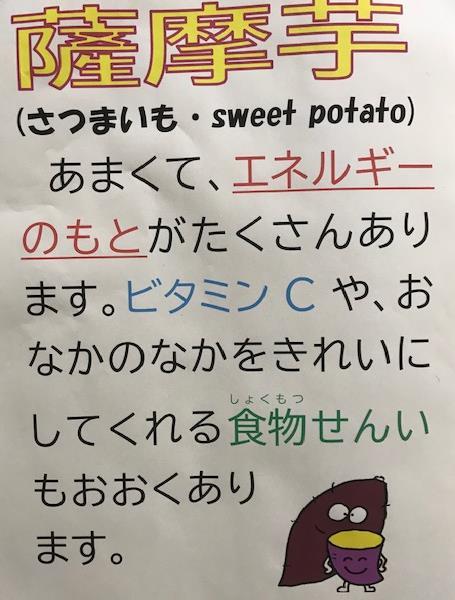 薩摩芋
(さつまいも・sweet potato)
あまくて、エネルギー
のもとがたくさんあり
ます。ビタミン C や、お
なかのなかをきれいに
しょくもつ
してくれる食物せんい
もおおくあり
ます。